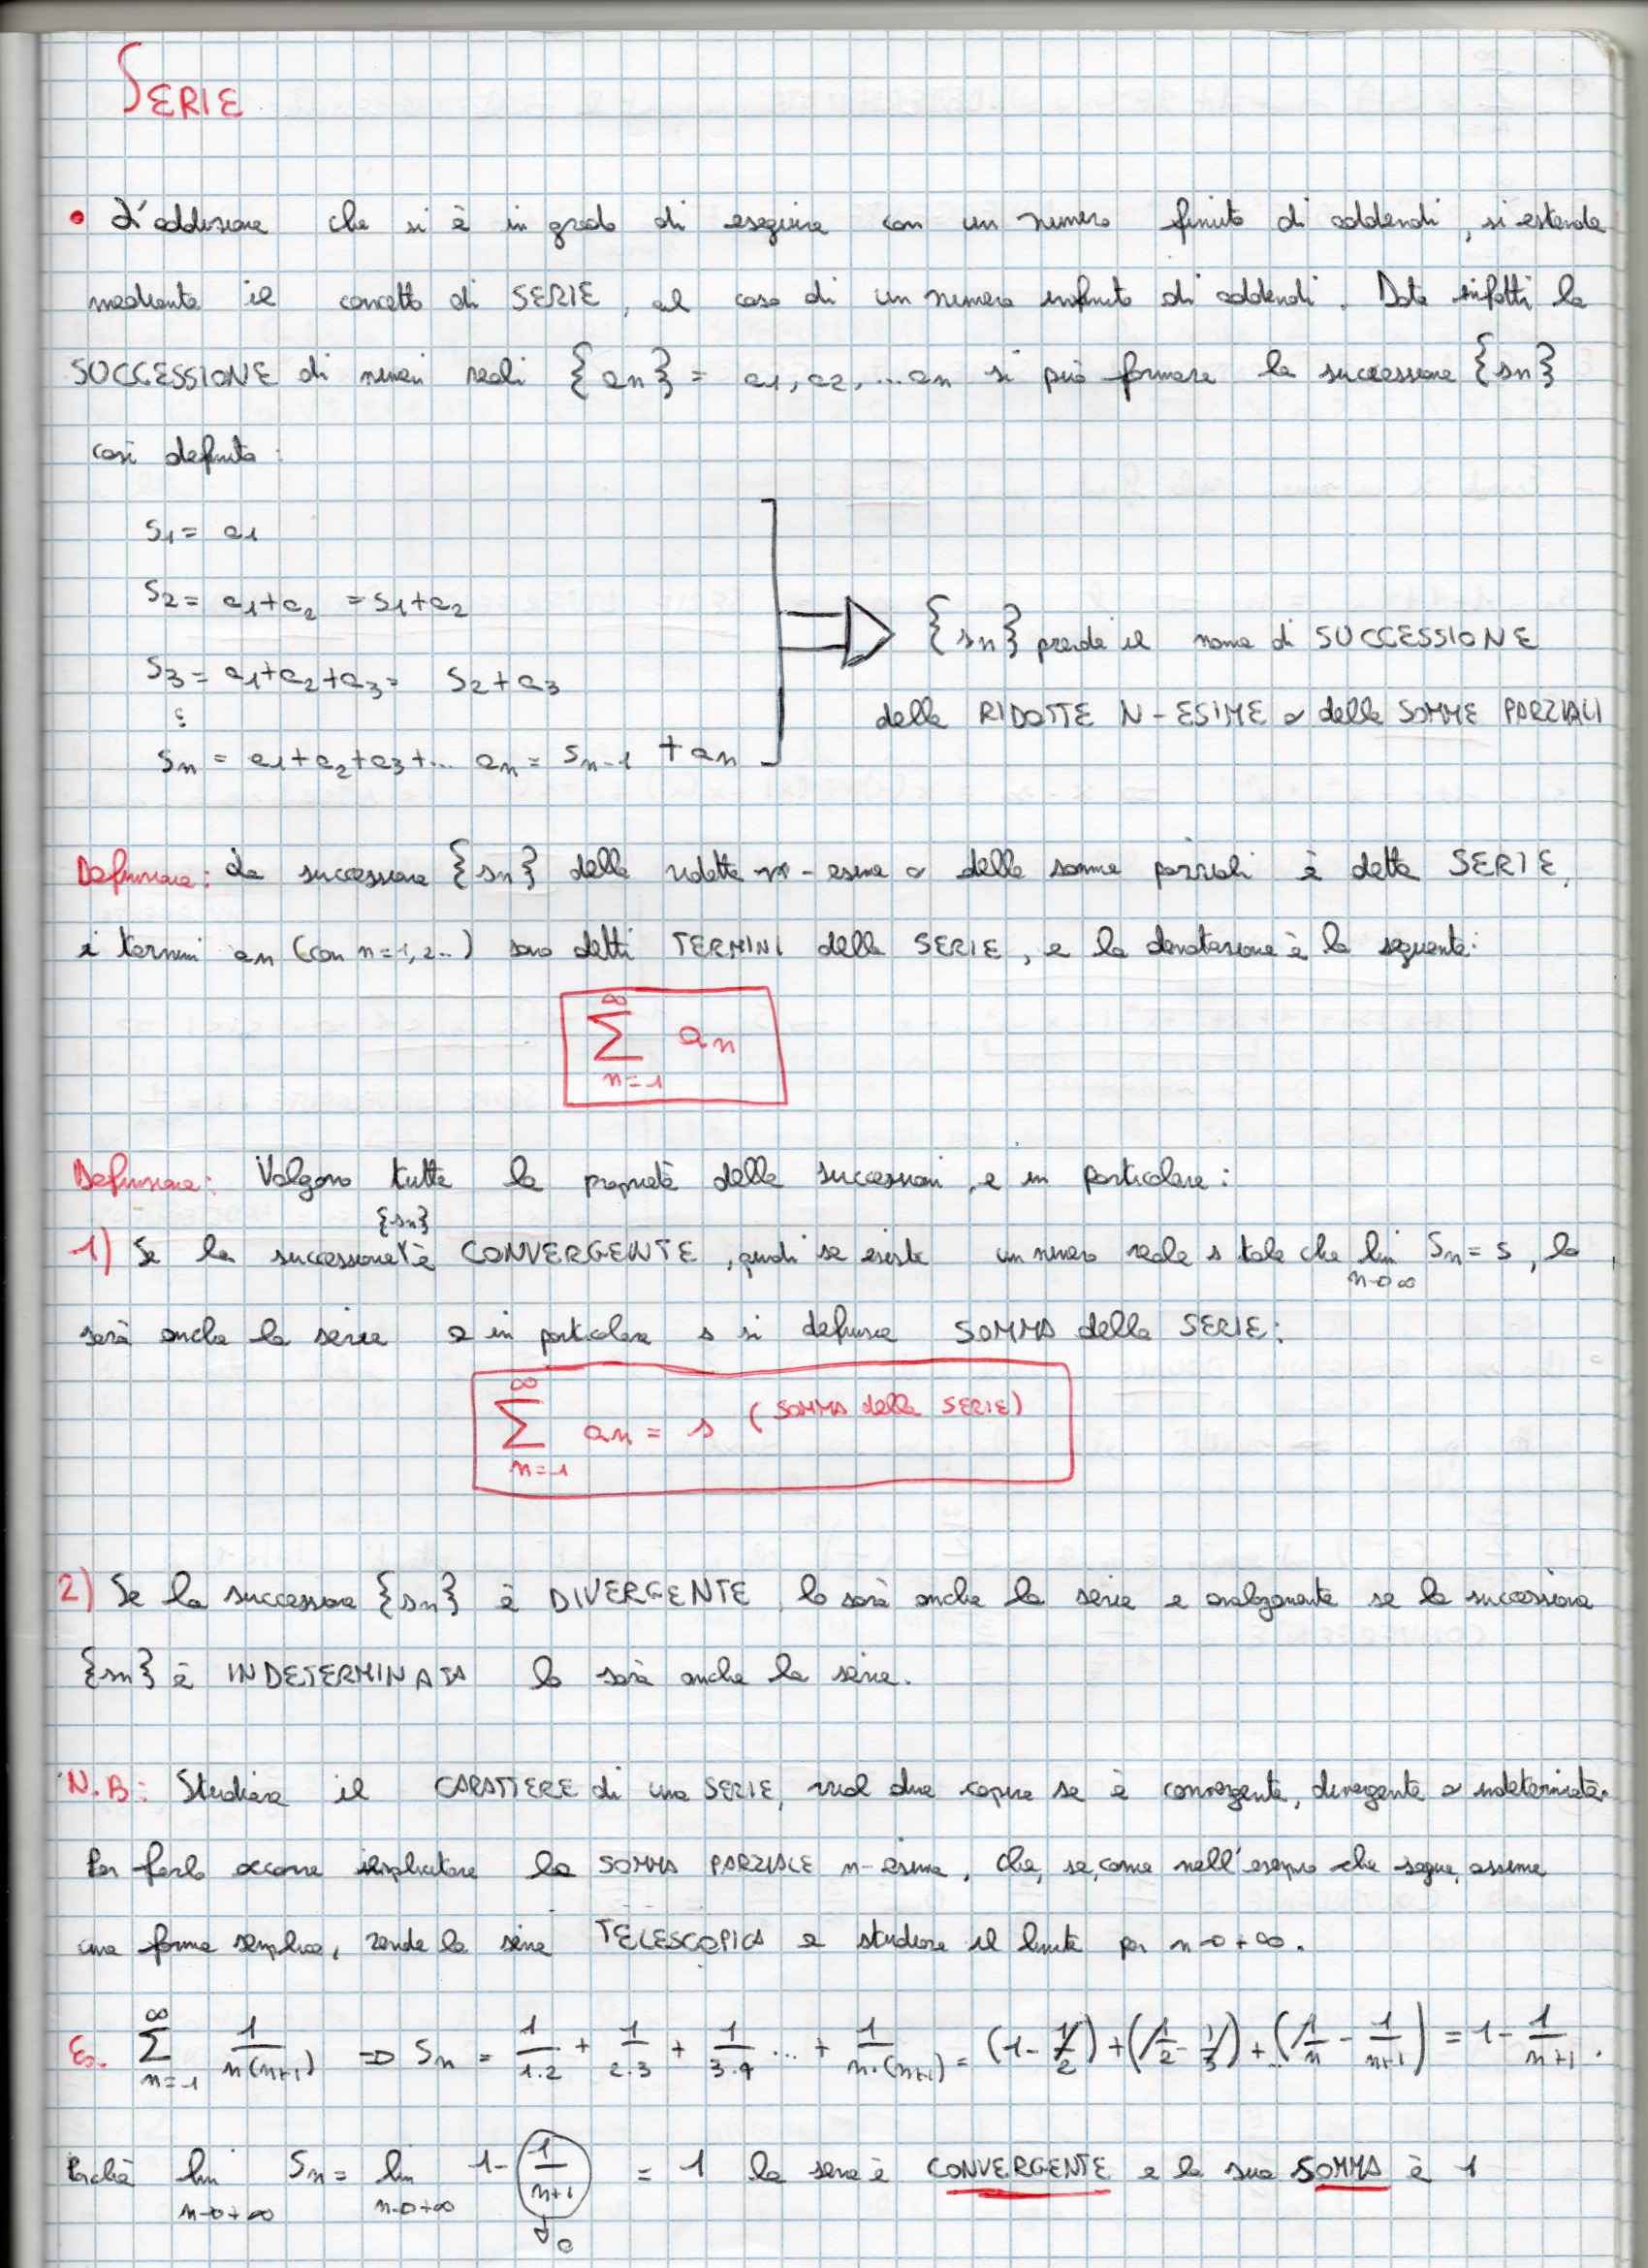 SERIE
• L'addizione che si è in grado di eseguire con un numero finito di addendi, si estende
mediante il concetto di SERIE, al caso di un numero infinito di addendi. Data infatti la
SUCCESSIONE di numeri reali {an} = a1, a2, ... an si può formare la successione {sn}
così definita:
S1 = a1
S2 = a1+a2 = S1+a2
S3 = a1+a2+a3 = S2+a3
⋮
Sn = a1+a2+a3+... an = Sn-1 + an
{sn} prende il nome di SUCCESSIONE
delle RIDOTTE N-ESIME o delle SOMME PARZIALI
Definizione: La successione {sn} delle ridotte n-esime o delle somme parziali è detta SERIE,
i termini an (con n=1,2..) sono detti TERMINI della SERIE, e la denotazione è la seguente:
∞
∑ an
n=1
Definizione: Valgono tutte le proprietà delle successioni, e in particolare:
{sn}
1) Se la successione è CONVERGENTE, quindi se esiste un numero reale s tale che lim Sn = s, lo
n→∞
sarà anche la serie e in particolare s si definisce SOMMA della SERIE:
∞
∑ an = s (SOMMA della SERIE)
n=1
2) Se la successione {sn} è DIVERGENTE, lo sarà anche la serie e analogamente se la successione
{sn} è INDETERMINATA lo sarà anche la serie.
N.B: Studiare il CARATTERE di una SERIE, vuol dire capire se è convergente, divergente o indeterminata.
Per farlo occorre esplicitare la SOMMA PARZIALE n-esima, che, se, come nell'esempio che segue, assume
una forma semplice, rende la serie TELESCOPICA e studiare il limite per n→+∞.
Es. ∞∑n=1 1/n(n+1) ⇒ Sn = 1/1·2 + 1/2·3 + 1/3·4 ... + 1/n·(n+1) = (1 - 1/2) + (1/2 - 1/3) + ... (1/n - 1/n+1) = 1 - 1/n+1.
Poichè lim n→+∞ Sn = lim n→+∞ 1 - 1/n+1 = 1 la serie è CONVERGENTE e la sua SOMMA è 1
↓0